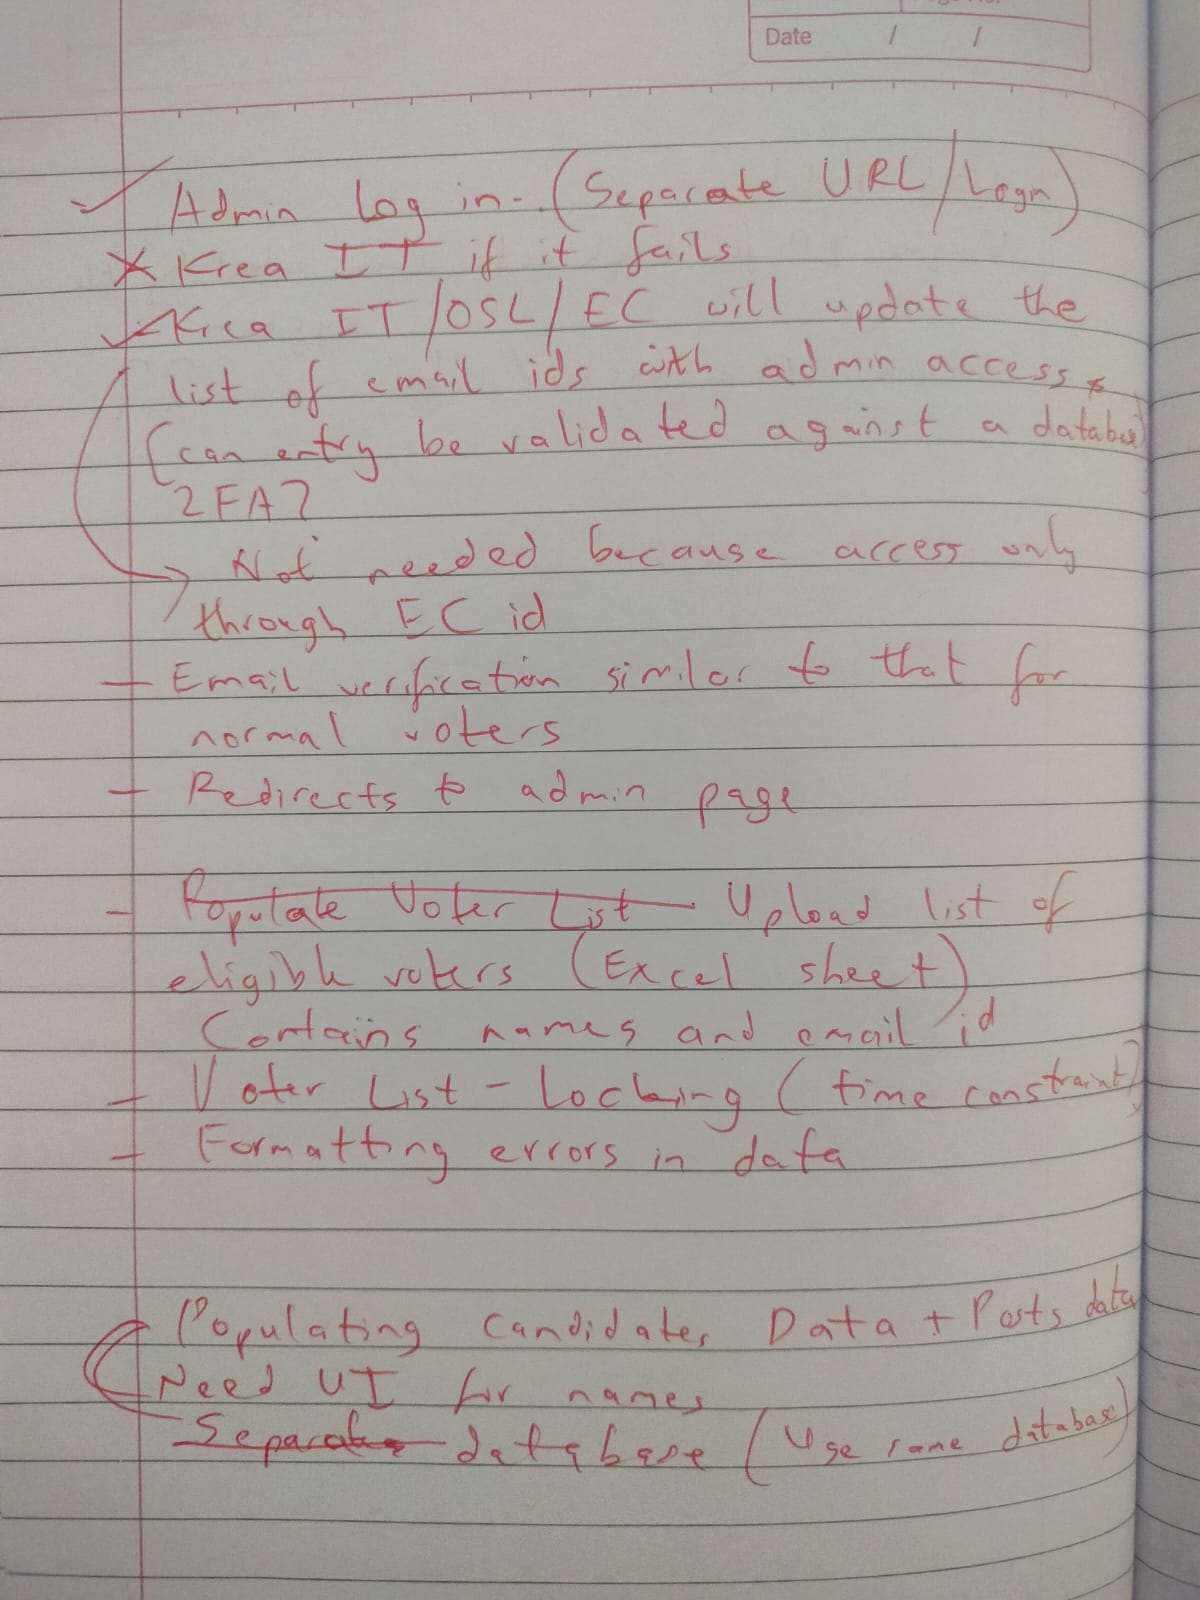 Date / /
Admin Log in - (Separate URL/Login)
* Krea IT if it fails
Krea IT/OSL/EC will update the
list of email ids with admin access
(can entry be validated against a database)
2FA?
Not needed because access only
through EC id
- Email verification similar to that for
normal voters
- Redirects to admin page
- Populate Voter List - Upload list of
eligible voters (Excel sheet)
Contains names and email id
- Voter List - Locking (time constraint)
- Formatting errors in data
Populating Candidates Data + Posts data
Need UI for names
Separate database (Use same database)